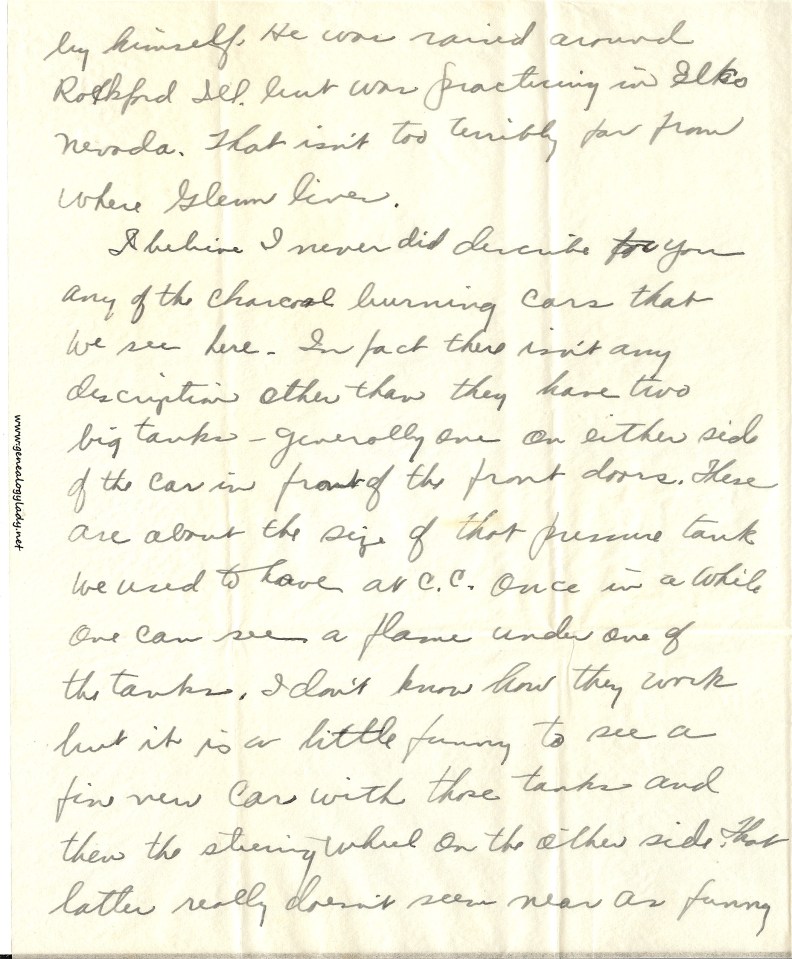 by himself. He was raised around
Rockford Ill. but was practicing in Elko
Nevada. That isn't too terribly far from
where Glenn lives.
I believe I never did describe for you
any of the charcoal burning cars that
we see here. In fact there isn't any
description other than they have two
big tanks - generally one on either side
of the car in front of the front doors. These
are about the size of that pressure tank
we used to have at C.C. Once in a while
one can see a flame under one of
the tanks. I don't know how they work
but it is a little funny to see a
fine new car with those tanks and
then the steering wheel on the other side. That
latter really doesn't seem near as funny
www.genealogylady.net